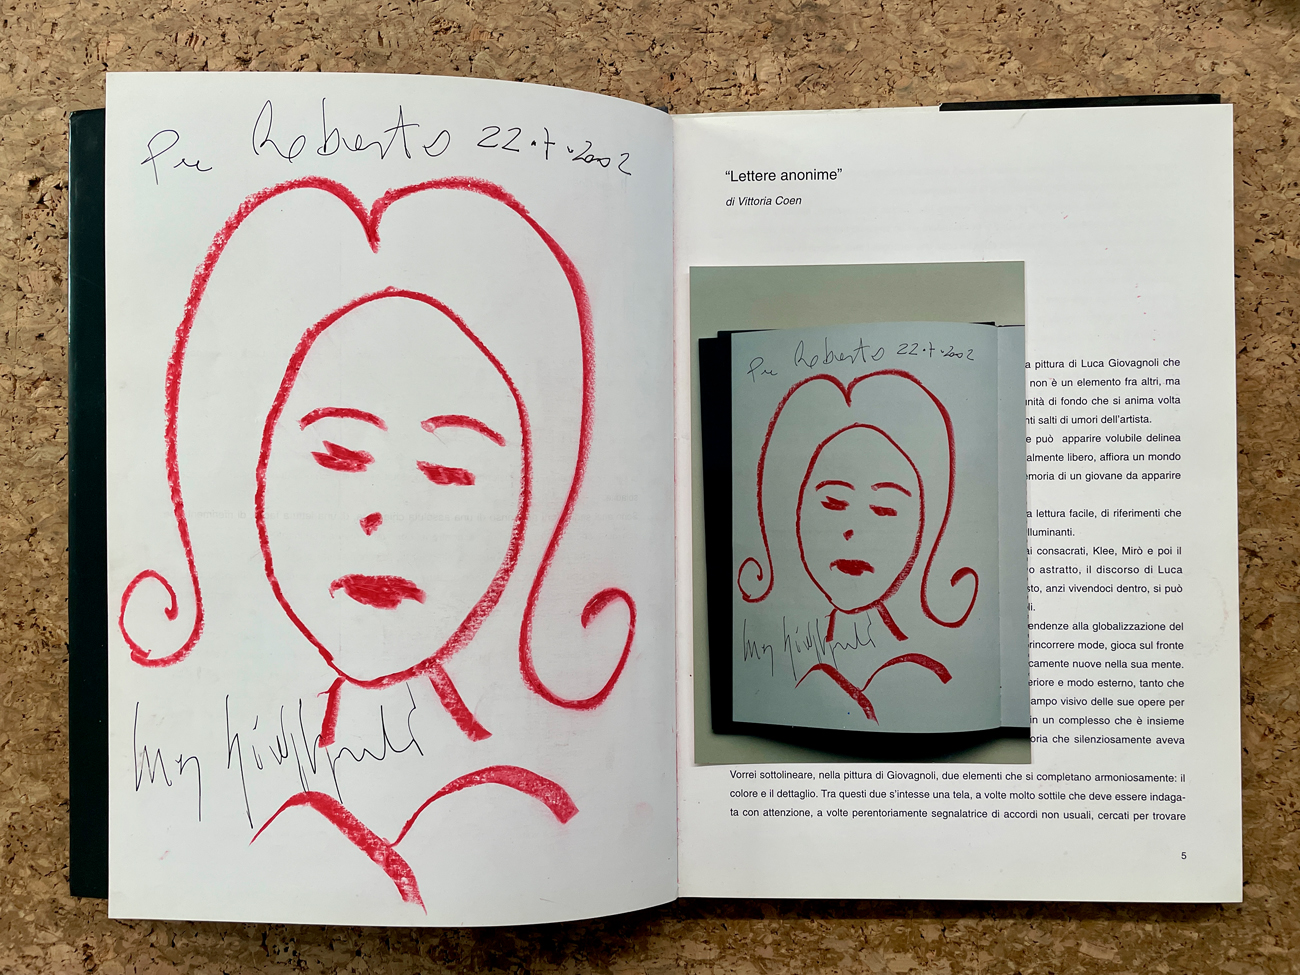 Per Roberto 22.7.2002
Luca Giovagnoli
“Lettere anonime”
di Vittoria Coen
Per Roberto 22.7.2002
Luca Giovagnoli
a pittura di Luca Giovagnoli che
non è un elemento fra altri, ma
unità di fondo che si anima volta
nti salti di umori dell'artista.
e può apparire volubile delinea
almente libero, affiora un mondo
emoria di un giovane da apparire
a lettura facile, di riferimenti che
illuminanti.
ai consacrati, Klee, Mirò e poi il
o astratto, il discorso di Luca
sto, anzi vivendoci dentro, si può
oli.
endenze alla globalizzazione del
rincorrere mode, gioca sul fronte
camente nuove nella sua mente.
eriore e modo esterno, tanto che
ampo visivo delle sue opere per
in un complesso che è insieme
oria che silenziosamente aveva
Vorrei sottolineare, nella pittura di Giovagnoli, due elementi che si completano armoniosamente: il
colore e il dettaglio. Tra questi due s'intesse una tela, a volte molto sottile che deve essere indaga-
ta con attenzione, a volte perentoriamente segnalatrice di accordi non usuali, cercati per trovare
5